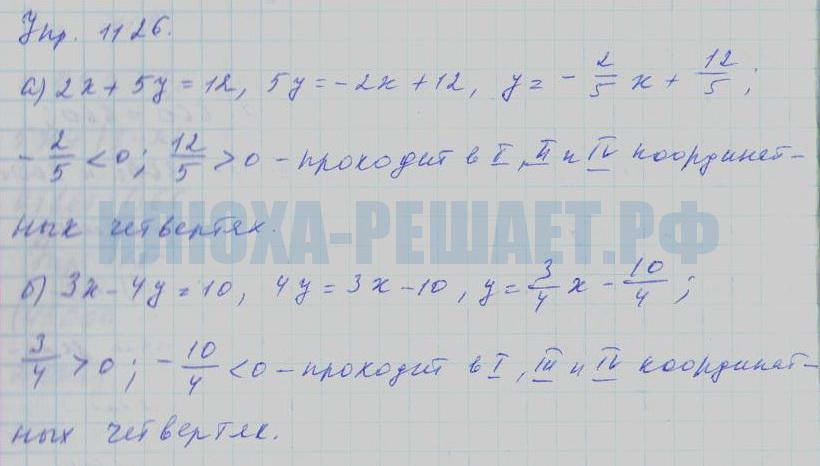 Упр. 1126.
а) 2x + 5y = 12, 5y = -2x + 12, y = - 2/5 x + 12/5;
- 2/5 < 0; 12/5 > 0 - проходит в I, II и IV координат-
ных четвертях.
ИЛЮХА-РЕШАЕТ.РФ
б) 3x - 4y = 10, 4y = 3x - 10, y = 3/4 x - 10/4;
3/4 > 0; - 10/4 < 0 - проходит в I, III и IV координат-
ных четвертях.